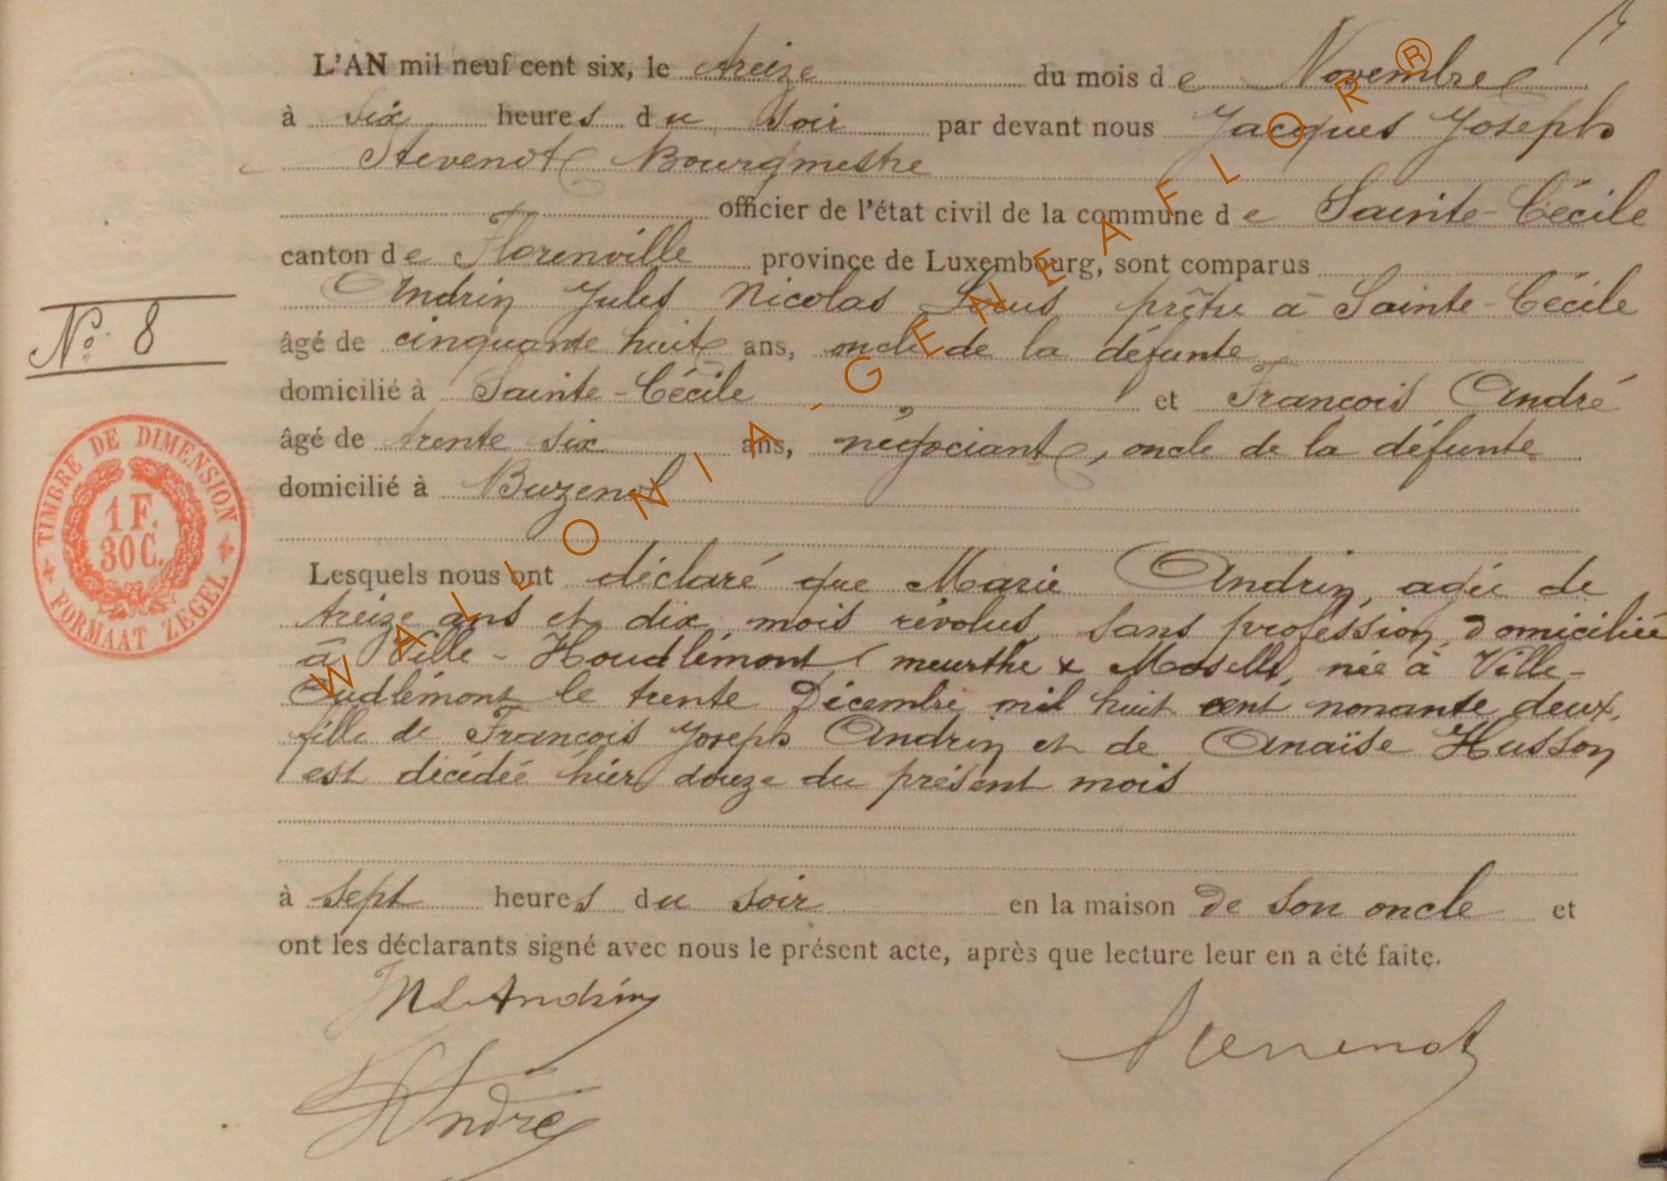 L'AN mil neuf cent six, le treize du mois de Novembre
à six heures du soir par devant nous Jacques Joseph
Stevenot Bourgmestre
officier de l'état civil de la commune de Sainte-Cécile
canton de Florenville province de Luxembourg, sont comparus
Andrin Jules Nicolas Louis prêtre à Sainte-Cécile
N° 8
âgé de cinquante huit ans, oncle de la défunte
domicilié à Sainte-Cécile, et François André
âgé de trente six ans, négociant, oncle de la défunte
domicilié à Buzenol
TIMBRE DE DIMENSION
1 F.
30 C.
FORMAAT ZEGEL
Lesquels nous ont déclaré que Marie Andrin, agée de
treize ans et dix mois révolus, sans profession, domiciliée
à Ville-Houdlémont (meurthe & Moselle, née à Ville-
Oudlémont le trente Décembre mil huit cent nonante deux,
fille de François Joseph Andrin et de Anaïse Husson
est décédée hier douze du présent mois
à sept heures du soir en la maison de son oncle et
ont les déclarants signé avec nous le présent acte, après que lecture leur en a été faite.
JNL Andrin
Stevenot
André
WALLONIA-GENEAFLOR®